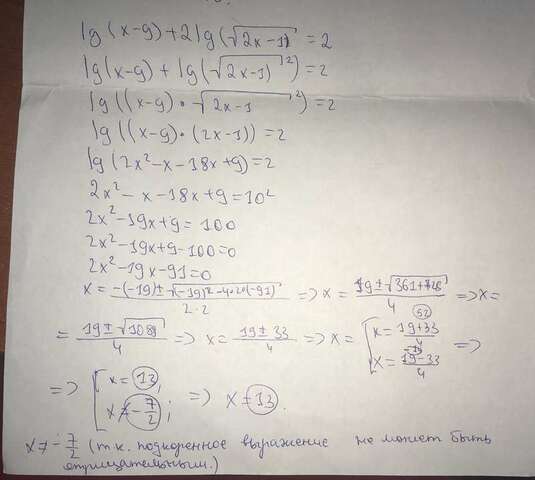 lg(x-9)+2lg(√2x-1) = 2
lg(x-9) + lg(√2x-1)²) = 2
lg((x-9) · √2x-1)²) = 2
lg((x-9)·(2x-1)) = 2
lg(2x²-x-18x+9) = 2
2x²-x-18x+9 = 10²
2x²-19x+9 = 100
2x²-19x+9-100=0
2x²-19x-91=0
x = -(-19)±√(-19)²-4·2·(-91) / 2·2 => x = 19±√361+728 / 4 => x =
= 19±√1089 / 4 => x = 19±33 / 4 => x = [ x = 19+33 / 4 (52) x = 19-33 / 4 (-14) =>
=> [ x = 13, x ≠ -7/2; => x = 13.
x ≠ -7/2 (т.к. подкоренное выражение не может быть
отрицательным.)